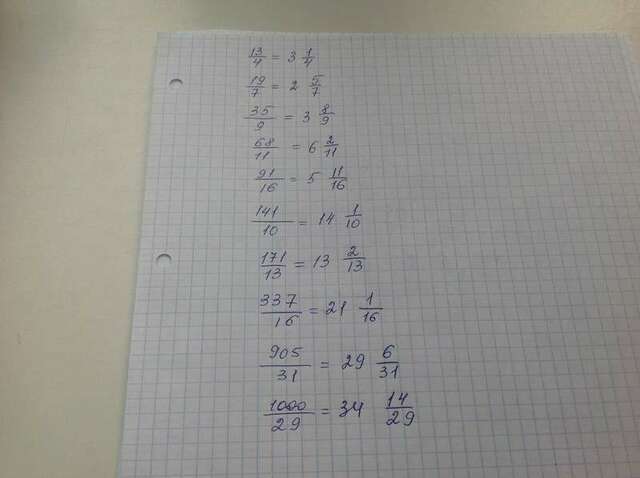 13/4 = 3 1/4
19/7 = 2 5/7
35/9 = 3 8/9
68/11 = 6 2/11
91/16 = 5 11/16
141/10 = 14 1/10
171/13 = 13 2/13
337/16 = 21 1/16
905/31 = 29 6/31
1000/29 = 34 14/29